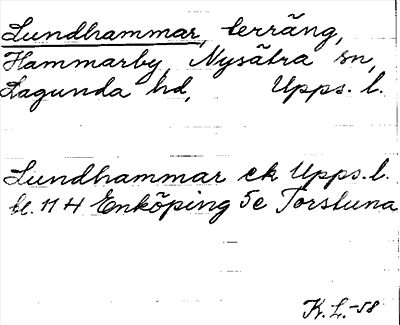 Lundhammar, terräng,
Hammarby Nysätra sn,
Lagunda hd, Upps. l.
Lundhammar ek Upps. l.
bl. 11 H Enköping 5e Torstuna
K. L. -58